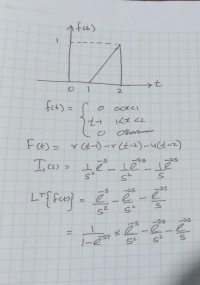 f(t)
1
0 1 2 t
f(t) = { 0 0<t<1
t-1 1<t<2
0 Otherwise
F(t) = r(t-1) - r(t-2) - u(t-2)
I₁(s) = 1/s² e^-s - 1/s² e^-2s - 1/s e^-2s
LT{f(t)} = e^-s/s² - e^-2s/s² - e^-2s/s
= 1/(1-e^-sT) × e^-s/s² - e^-2s/s² - e^-2s/s